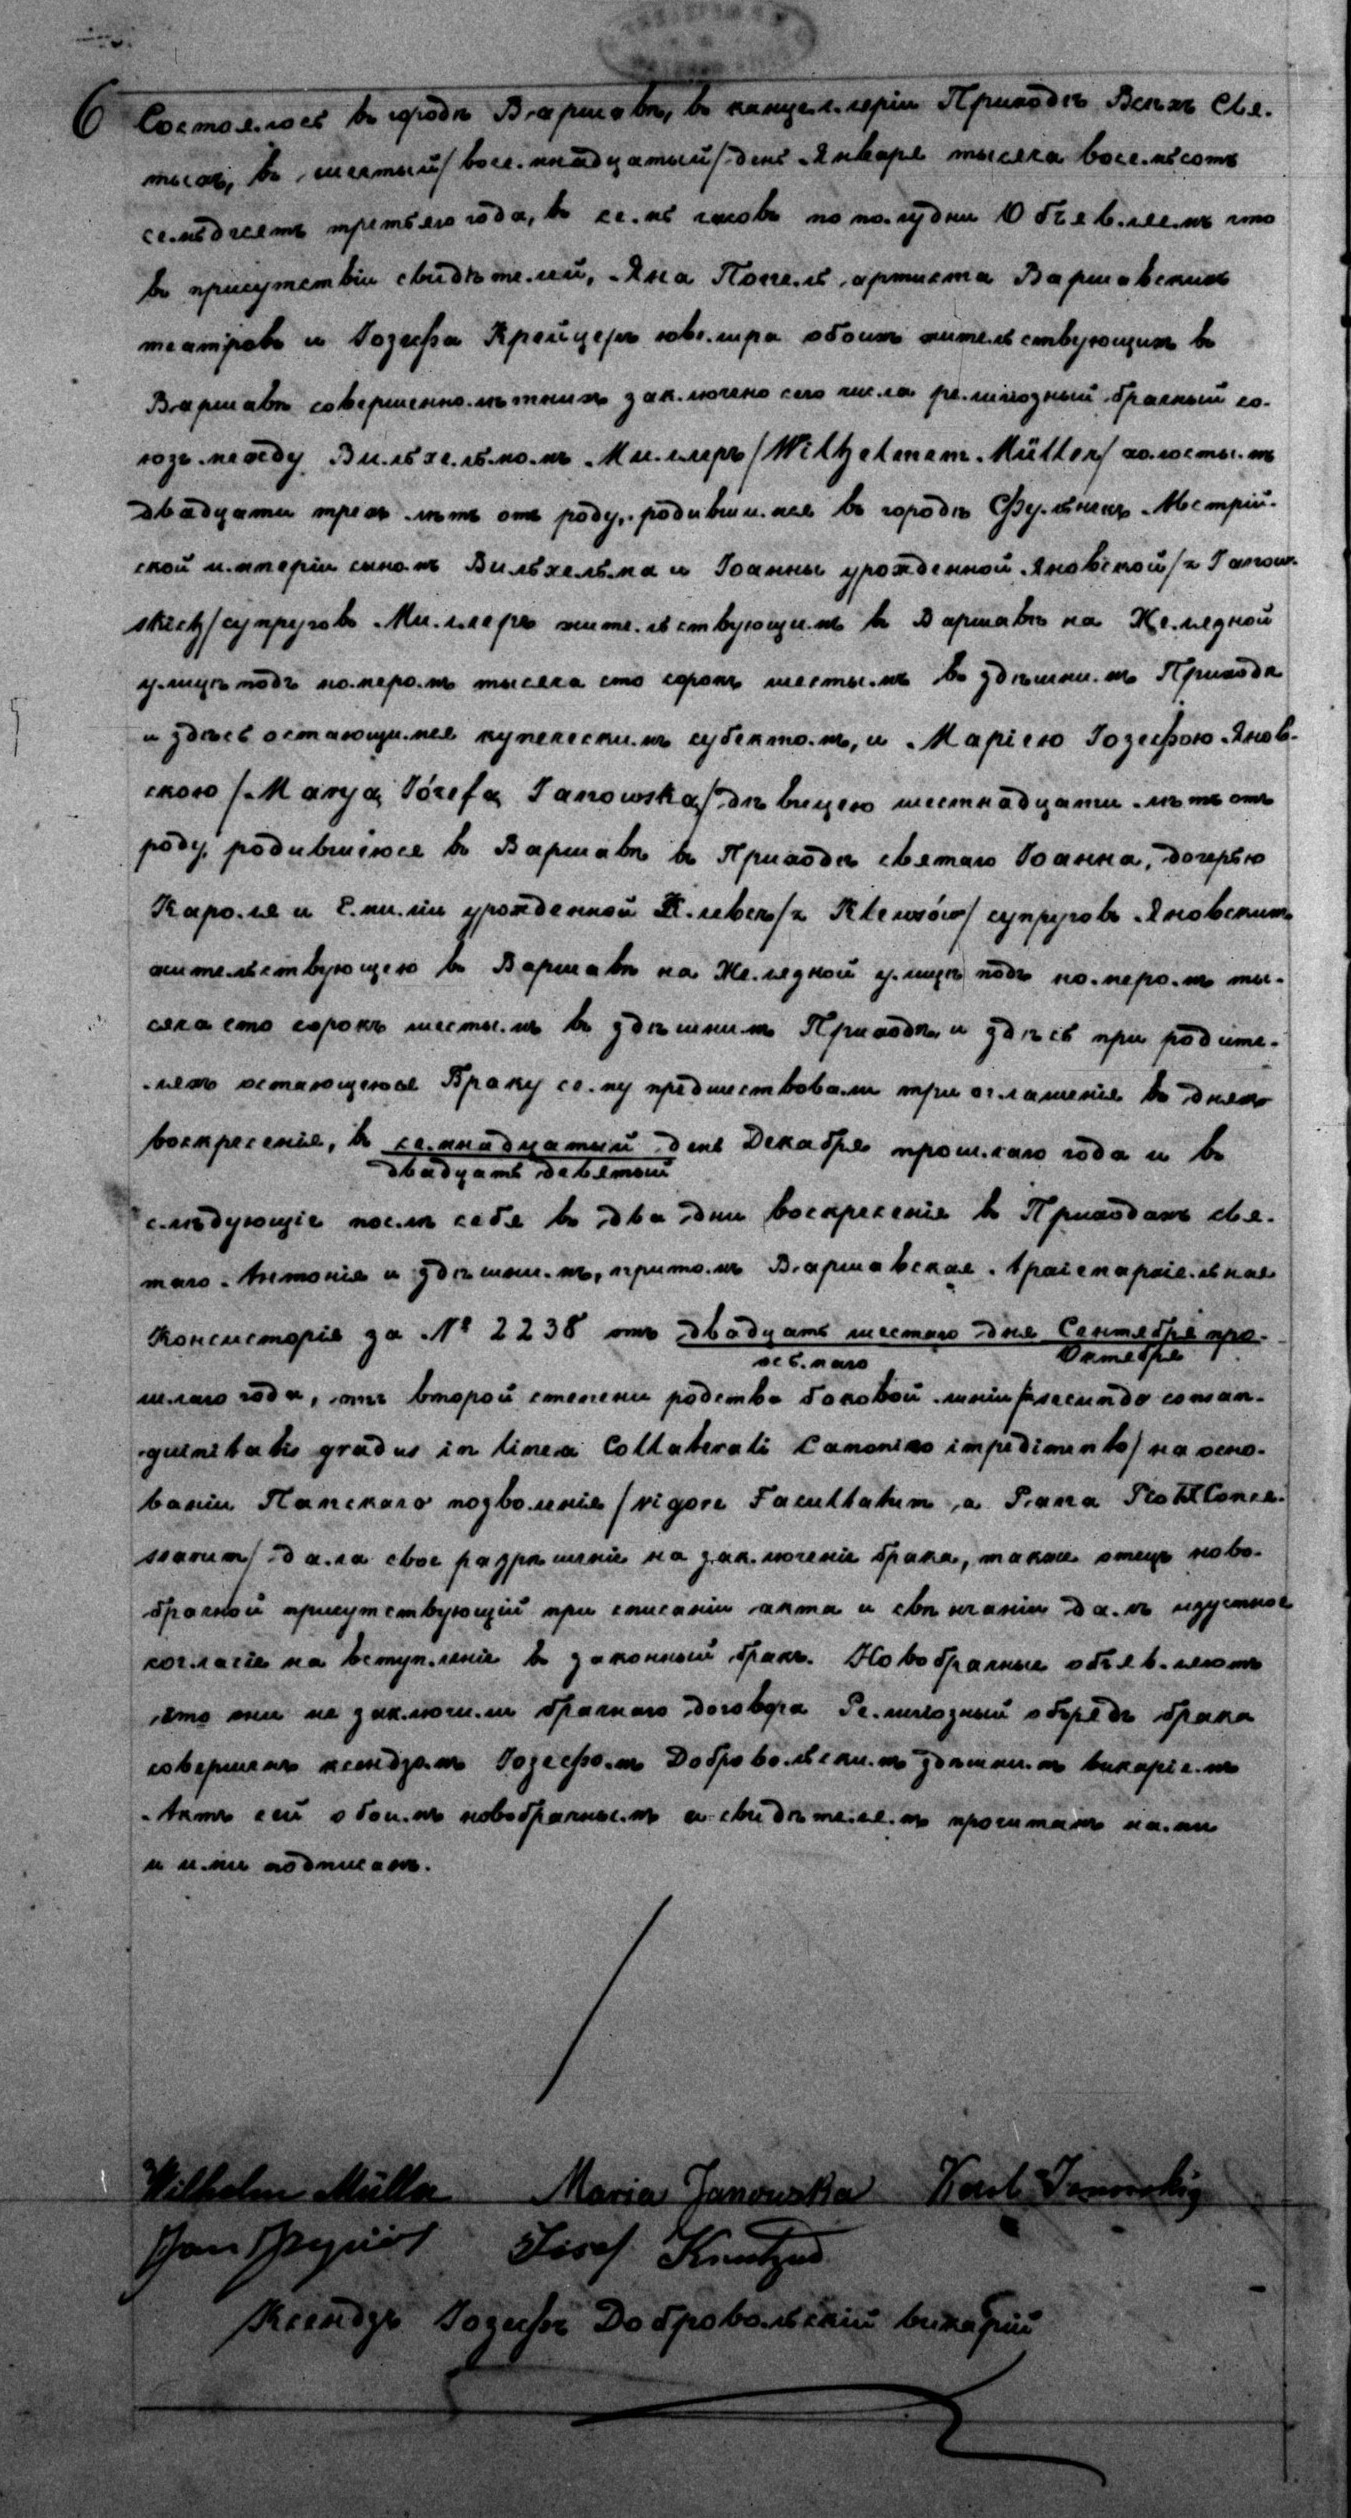 6 Состоялось въ городѣ Варшавѣ, въ канцеллеріи Прихода Всѣхъ Свя-
тыхъ, въ шестый /восемнадцатый/ день Января тысяча восемьсотъ
семьдсятъ третьяго года, въ семь часовъ по полудни Объявляемъ что
въ присутствіи свидѣтелей, Яна артиста Варшавскихъ
театровъ и Іозефа Крейцеръ ювелира обоихъ жительствующихъ въ
Варшавѣ совершеннолѣтнихъ заключено сего числа религіозный брачный со-
юзъ между Вильхельмомъ Миллеръ /Wilhelmem Müller/ холостымъ
двадцати трехъ лѣтъ отъ роду, родившимся въ городѣ Фульнекъ Австрій-
ской имперіи сыномъ Вильхельма и Іоанны урожденной Яновской /z Janow-
skich/ супруговъ Миллеръ жительствующимъ въ Варшавѣ на Желязной
улицѣ подъ номеромъ тысяча сто сорокъ шестымъ въ здѣшнимъ Приходѣ
и здѣсь остающимся купеческимъ субектомъ, и Маріею Іозефою Янов-
скою /Maryą Józefą Janowską/ дѣвицею шестнадцати лѣтъ отъ
роду, родившеюся въ Варшавѣ въ Приходѣ святаго Іоанна, дочерью
Кароля и Емиліи урожденной Клевсъ /z Klewsów/ супруговъ Яновскихъ
жительствующею въ Варшавѣ на Желязной улицѣ подъ номеромъ ты-
сяча сто сорокъ шестымъ въ здѣшнимъ Приходѣ и здѣсь при родите-
ляхъ остающеюся Браку сему предшествовали три оглашенія въ дняхъ
воскресенія, въ семнадцатый день Декабря прошлаго года и въ
двадцать девятый
слѣдующіе послѣ себя въ два дни воскресенія въ Приходахъ свя-
таго Антонія и здѣшнимъ, притомъ Варшавская Архіепархіельная
Консисторія за № 2238 отъ двадцать шестаго дня Сентября про-
осьмаго Октября
шлаго года, отъ второй степени родства боковой линіи /a secundo consan-
guinitatis gradus in linea Collaterali Canonico impedimento/ на осно-
ваніи Папскаго позволенія /vigore Facultatum a Papa Pio IX Conce-
ssarum/ дала свое разрѣшеніе на заключеніе брака, также отецъ ново-
брачной присутствующій при списаніи акта и свѣнчаніи далъ изустное
согласіе на вступленіе въ законный бракъ. Новобрачные объявляютъ
что они не заключили брачнаго договора Религіозный обрядъ брака
совершенъ ксендзомъ Іозефомъ Добровольскимъ здѣшнимъ викаріемъ
Актъ сей обоимъ новобрачнымъ и свидѣтелемъ прочитанъ нами
и ими подписанъ.
Wilhelm Müller Maria Janowska Karl Janowski
Jan Josef
Ксендзъ Іозефъ Добровольскій викарій